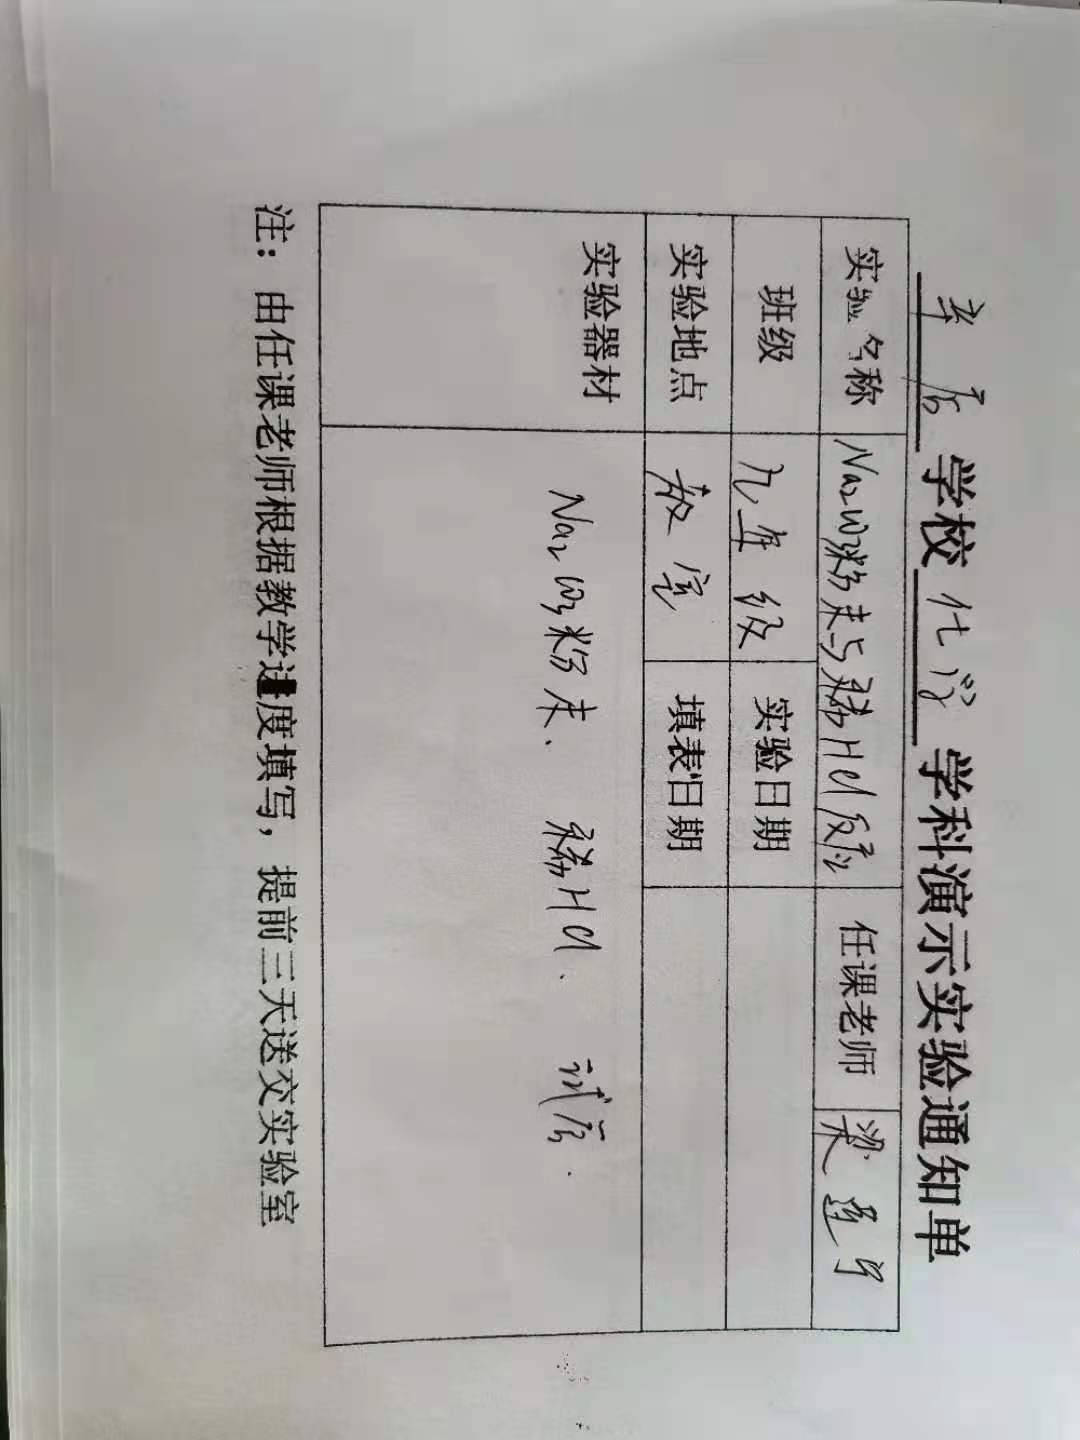 学校 化学 学科演示实验通知单
实验名称 Na2CO3粉末与稀HCl反应 任课老师 梁
班级 九年级 实验日期
实验地点 教室 填表日期
实验器材 Na2CO3粉末、稀HCl、试管.
注：由任课老师根据教学进度填写，提前三天送交实验室